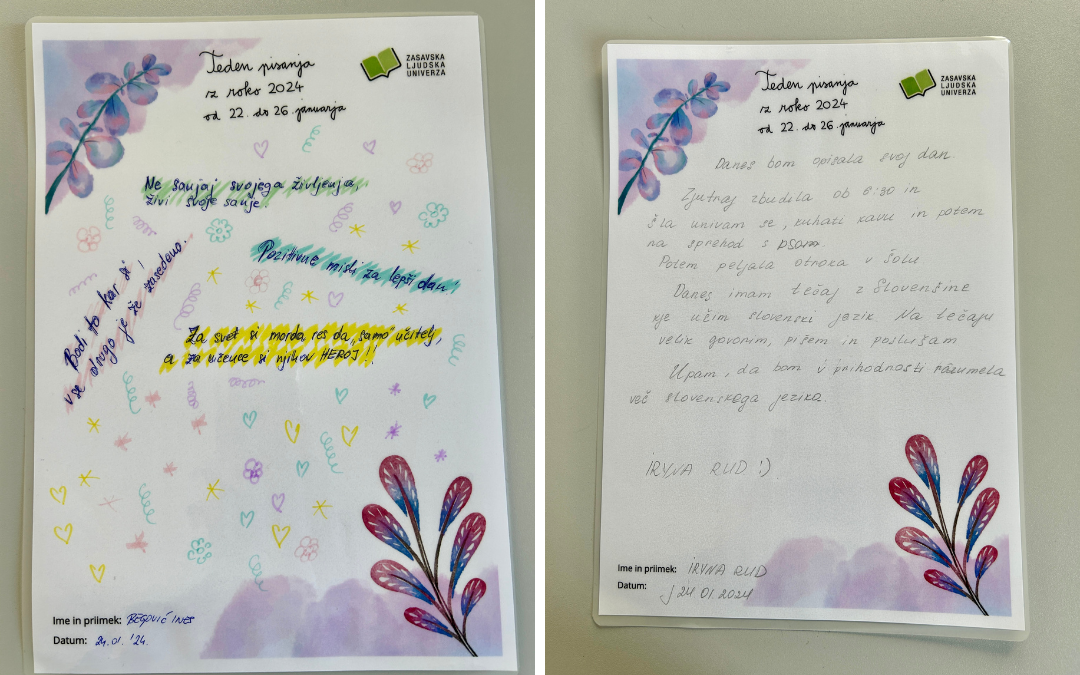 Teden pisanja
z roko 2024
od 22. do 26. januarja
ZASAVSKA
LJUDSKA
UNIVERZA
Ne sanjaj svojega življenja,
živi svoje sanje.
Pozitivne misli za lepši dan
Bodi to kar si,
vse drugo je že zasedeno.
Za svet si morda res da "samo" učitelj,
a za učence si njihov HEROJ!!
Ime in priimek: BEGOVIĆ INES
Datum: 24.01. '24.
Teden pisanja
z roko 2024
od 22. do 26. januarja
ZASAVSKA
LJUDSKA
UNIVERZA
Danes bom opisala svoj dan.
Zjutraj zbudila ob 6:30 in
šla umivam se, kuhati kavu in potem
na sprehod s psom.
Potem peljala otroka v šolu
Danes imam tečaj z Slovenšine
kje učim slovenski jezik. Na tečaju
velik govorim, pišem in poslušam
Upam, da bom v prihodnosti razumela
več slovenskega jezika.
IRYNA RUD :)
Ime in priimek: IRYNA RUD
Datum: 24.01.2024